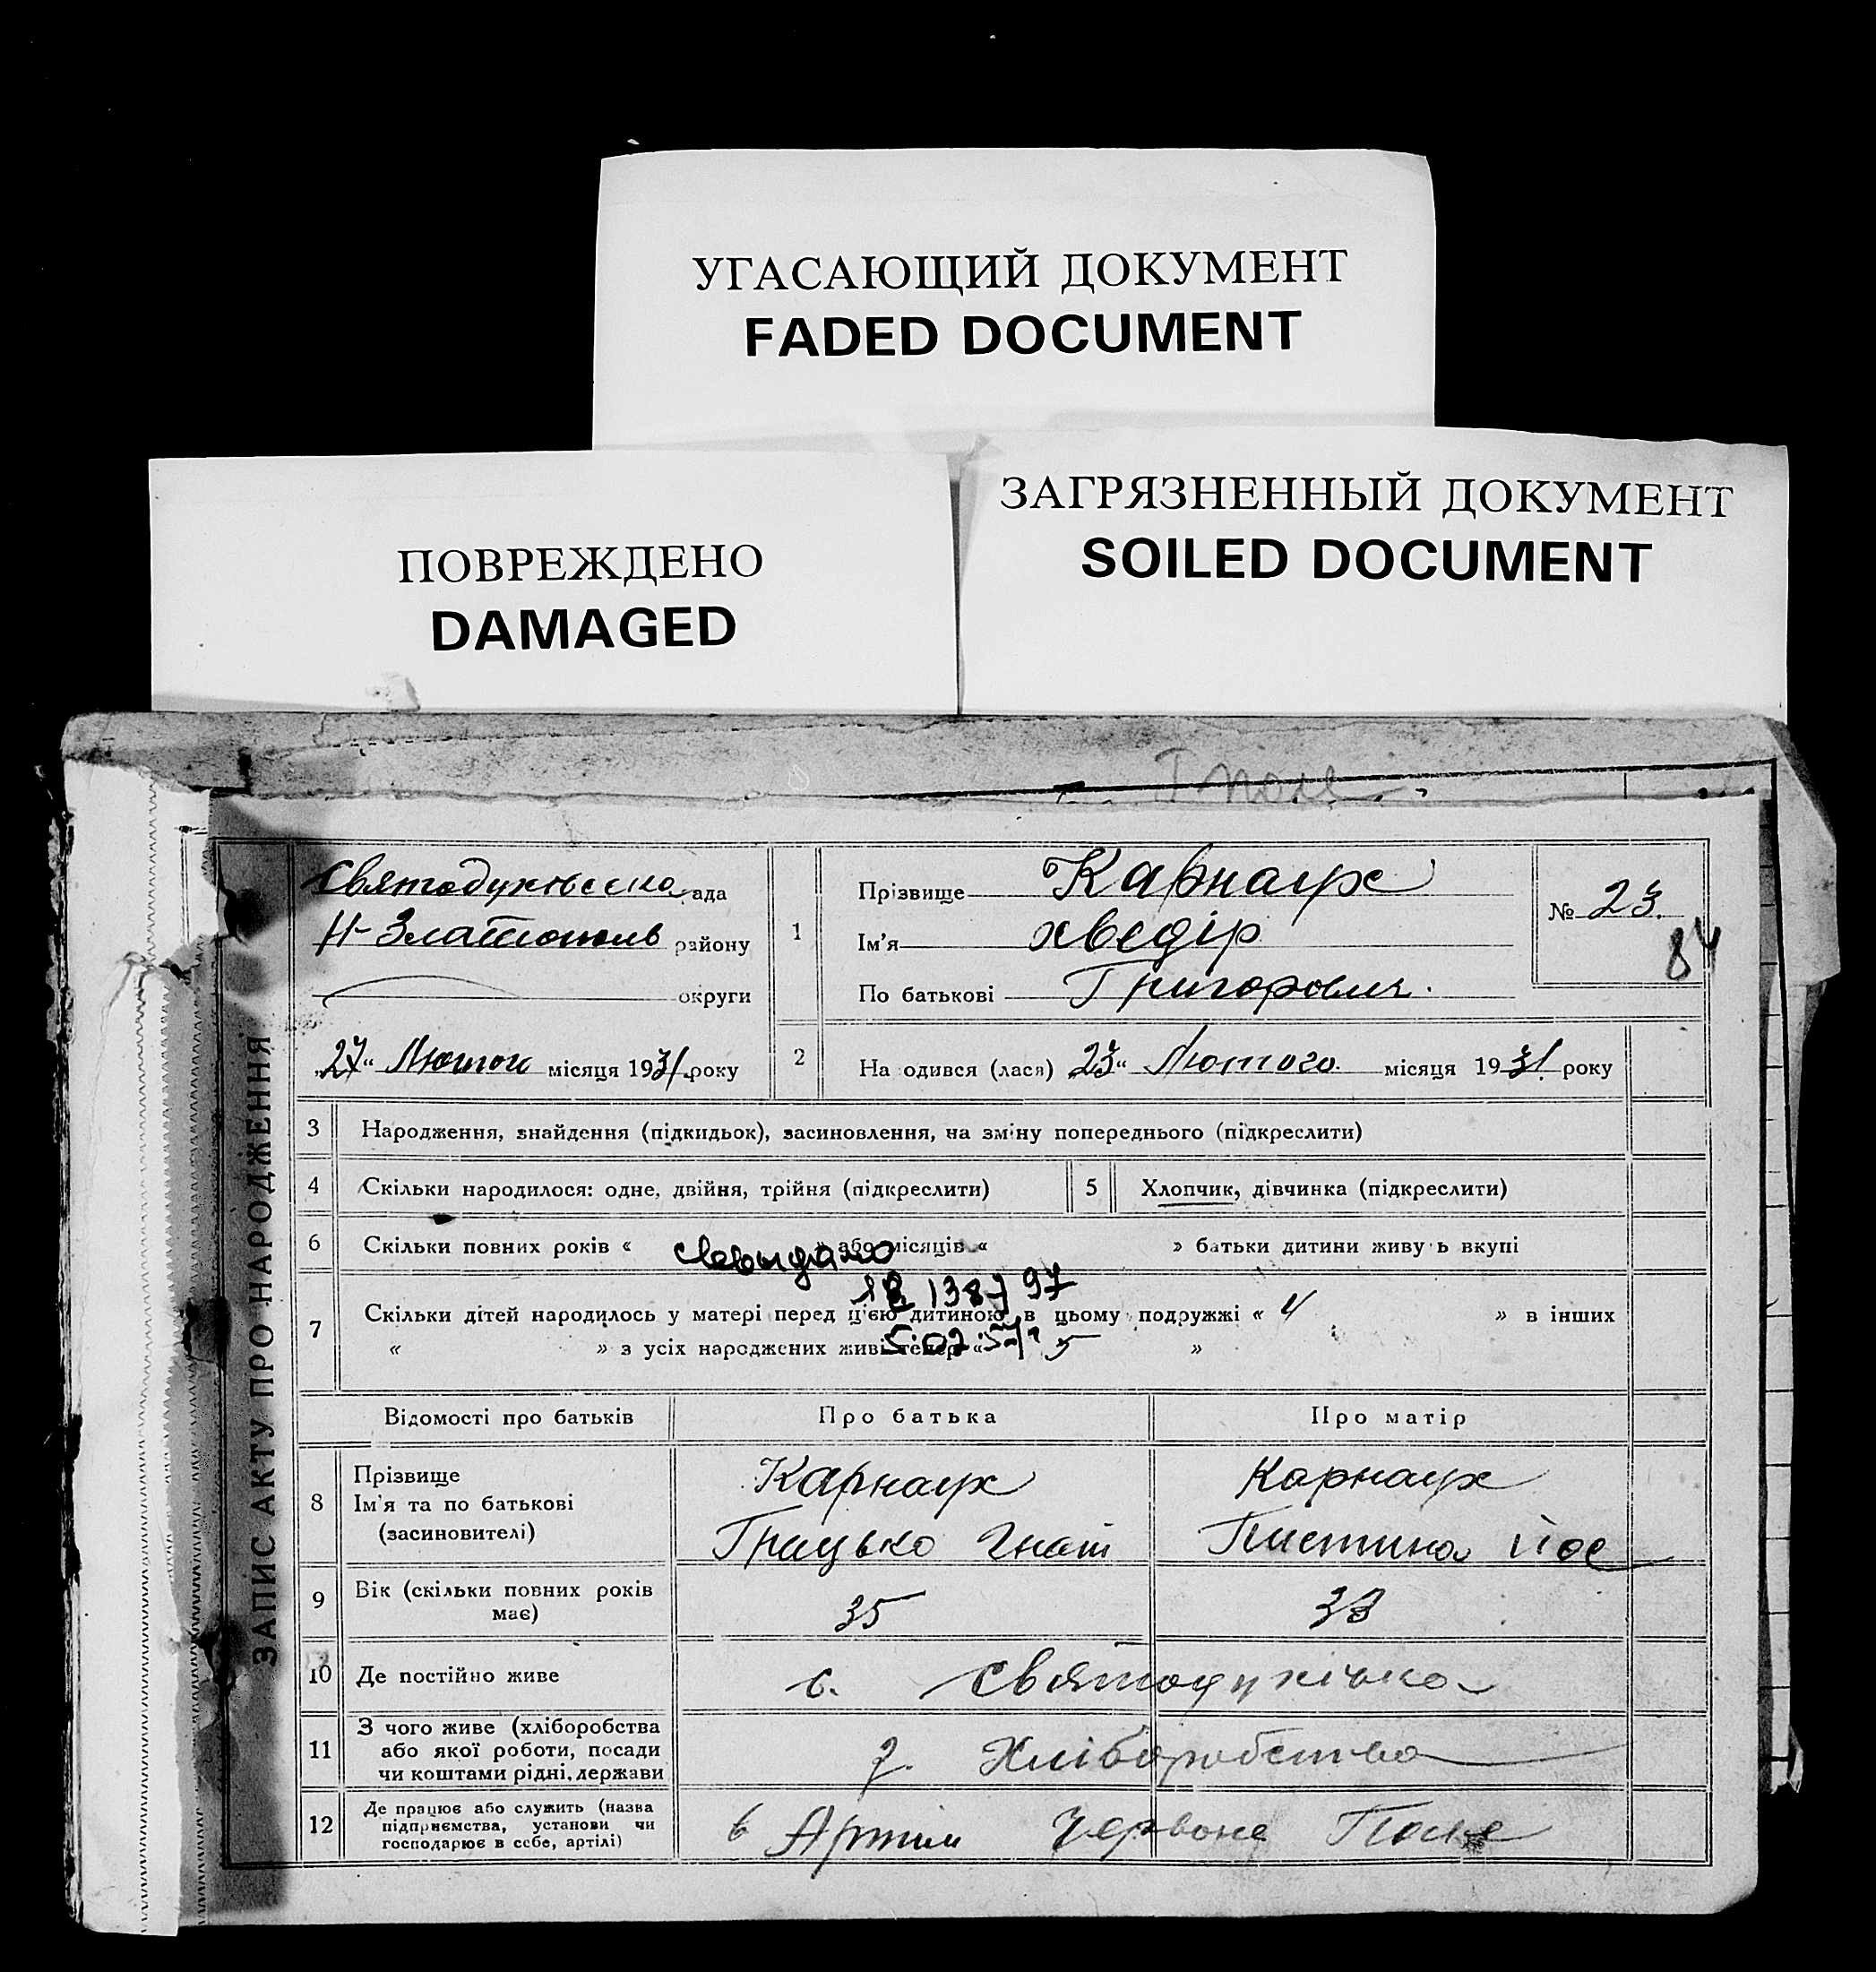 УГАСАЮЩИЙ ДОКУМЕНТ
FADED DOCUMENT
ПОВРЕЖДЕНО
DAMAGED
ЗАГРЯЗНЕННЫЙ ДОКУМЕНТ
SOILED DOCUMENT
ЗАПИС АКТУ ПРО НАРОДЖЕННЯ
Святодухівська рада
Н-Златополь району
округи
„27“ Лютого місяця 1931 року
1
Прізвище Карнаух
Ім'я Хведір
По батькові Григорович.
№ 23.
84
2
На одився (лася) „23“ Лютого місяця 1931. року
3 Народження, знайдення (підкидьок), засиновлення, на зміну попереднього (підкреслити)
4 Скільки народилося: одне, двійня, трійня (підкреслити)
5 Хлопчик, дівчинка (підкреслити)
6 Скільки повних років « » або місяців « » батьки дитини живу ь вкупі
7 Скільки дітей народилось у матері перед цією дитиною в цьому подружжі « 4 » в інших
« » з усіх народжених живі тепер « 5 »
Відомості про батьків Про батька Про матір
8 Прізвище
Ім'я та по батькові
(засиновителі)
Карнаух
Грицько Гнат
Карнаух
Пистина Йос
9 Вік (скільки повних років має) 35 33
10 Де постійно живе с. Святодухівка
11 З чого живе (хліборобства
або якої роботи, посади
чи коштами рідні, держави
з. Хліборобства
12 Де працює або служить (назва
підприємства, установи чи
господарює в себе, артілі)
в Артіли Червоне Поле